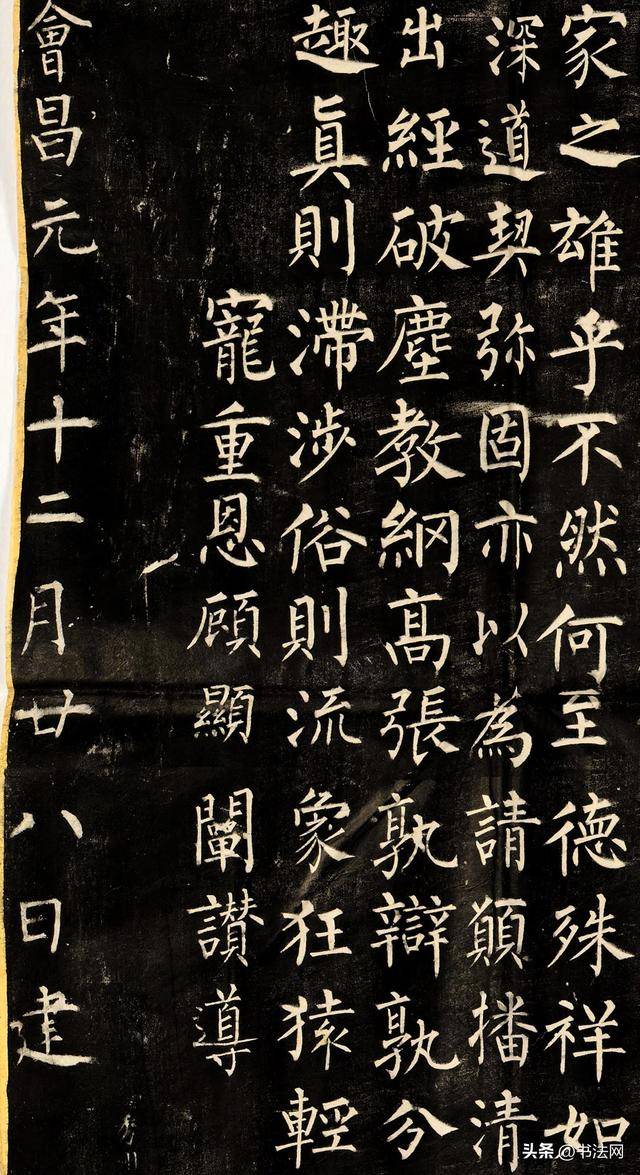 家之雄乎不然何至德殊祥如
深道契弥固亦以為請願播清
出經破塵教網高張孰辯孰分
趣真則滯涉俗則流象狂猿輕
寵重恩顧顯闡讃導
會昌元年十二月廿八日建
头条@书法网